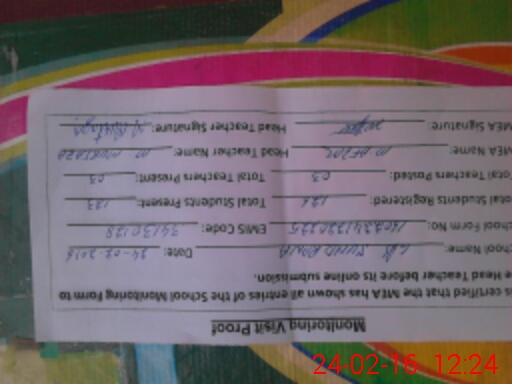 Monitoring Visit Proof
is certified that the MEA has shown all entries of the School Monitoring Form to
e Head Teacher before its online submission.
chool Name: Date: 24-02-2016
chool Form No: EMIS Code: 34130128
otal Students Registered: 126 Total Students Present: 123
otal Teachers Posted: 03 Total Teachers Present: 03
MEA Name: M AFZAL Head Teacher Name: M MURTAZA
MEA Signature: Head Teacher Signature:
24-02-16 12:24